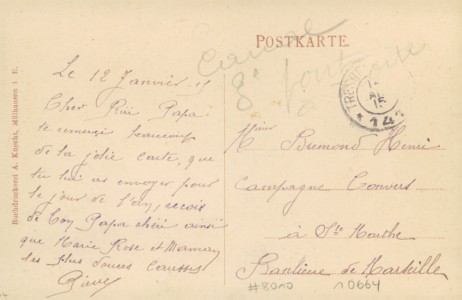 POSTKARTE
Buchdruckerei A. Knecht, Mülhausen i. E.
Le 12 Janvier 15
Cher Papa
te remercie beaucoup
de la jolie carte, que
tu lui as envoyer pour
le jour de l'an, recois
de ton Papa chéri ainsi
que Marie Rose et Maman
les plus douces caresses
TRÉSOR
15
* 142
Dumond Henri
Campagne Convers
à Ste Marthe
Banlieue de Marseille
#8010
10664